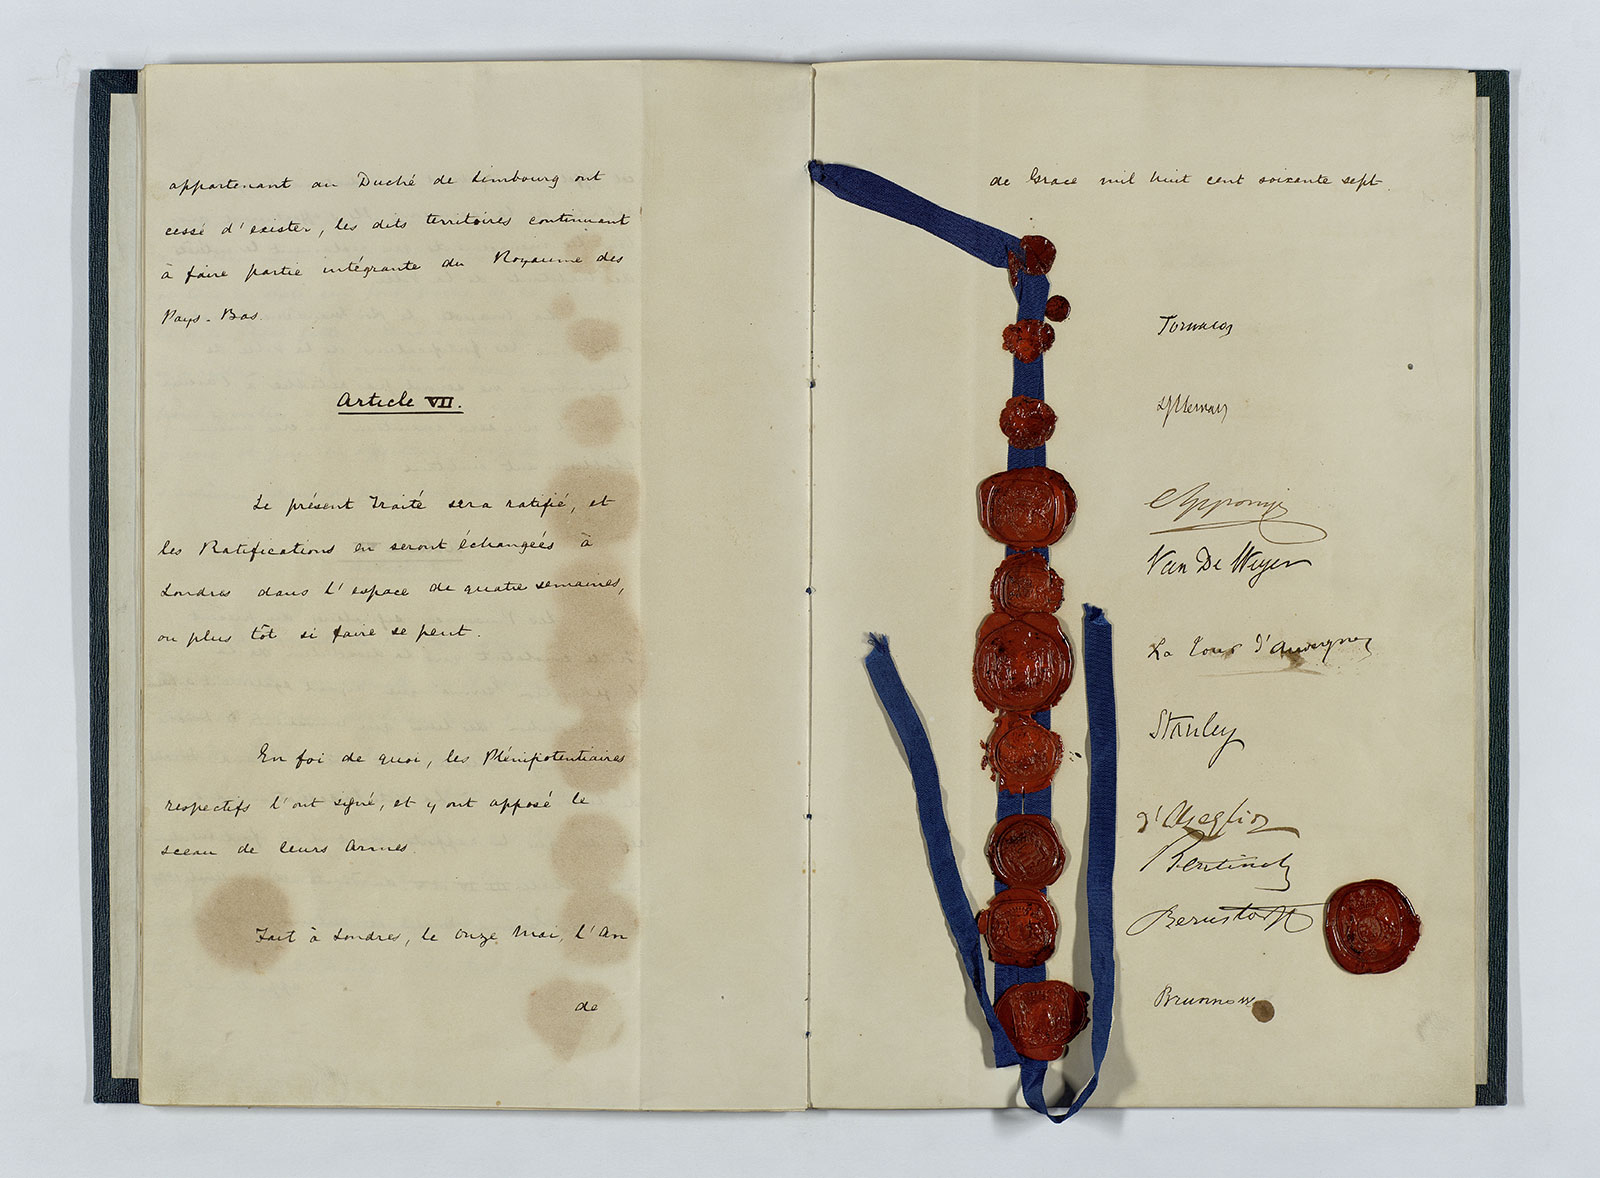 appartenant au Duché de Limbourg ont
cessé d'exister, les dits territoires continuant
à faire partie intégrante du Royaume des
Pays-Bas.
Article VII.
Le présent Traité sera ratifié, et
les Ratifications en seront échangées à
Londres dans l'espace de quatre semaines,
ou plus tôt si faire se peut.
En foi de quoi, les Plénipotentiaires
respectifs l'ont signé, et y ont apposé le
sceau de leurs Armes.
Fait à Londres, le onze Mai, l'An
de
de Grace mil huit cent soixante sept.
Tornaco
Apponyi
Van De Weyer
La Tour d'Auvergne
Stanley
d'Azeglio
Bentinck
Bernstorff
Brunnow